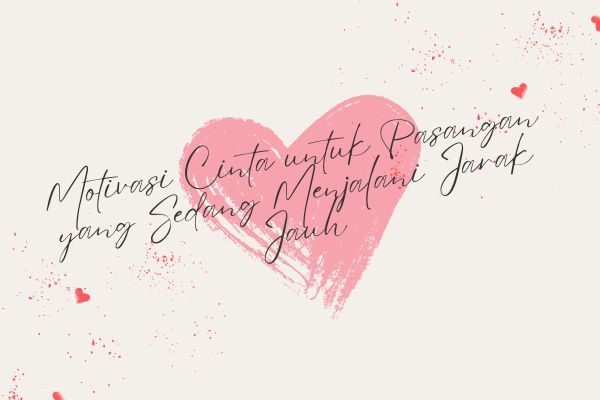 Motivasi Cinta untuk Pasangan
yang Sedang Menjalani Jarak
Jauh